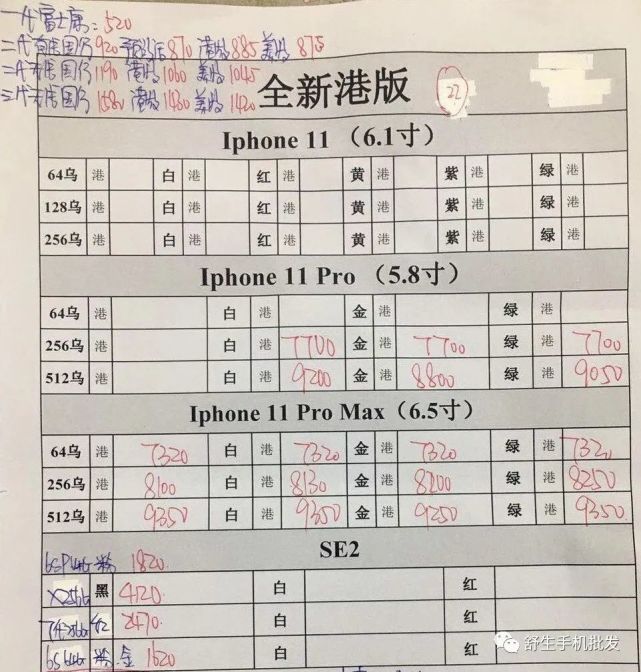 一代富士康:520
二代有店国行920 港版885 美版875
二代无店国行1190 港版1060 美版1045
三代无店国行1580 港版1430 美版1420
全新港版 22
Iphone 11 (6.1寸)
64乌 港 白 港 红 港 黄 港 紫 港 绿 港
128乌 港 白 港 红 港 黄 港 紫 港 绿 港
256乌 港 白 港 红 港 黄 港 紫 港 绿 港
Iphone 11 Pro (5.8寸)
64乌 港 白 港 金 港 绿 港
256乌 港 白 港 7700 金 港 7700 绿 港 7700
512乌 港 白 港 9200 金 港 8800 绿 港 9050
Iphone 11 Pro Max(6.5寸)
64乌 港 7320 白 港 7320 金 港 7320 绿 港 7320
256乌 港 8100 白 港 8130 金 港 8200 绿 港 8250
512乌 港 9350 白 港 9350 金 港 9250 绿 港 9350
SE2
6SP64G 粉 1820
X256G 黑 4120 白 红
红 2470
6S64G 粉.金 1620
舒生手机批发